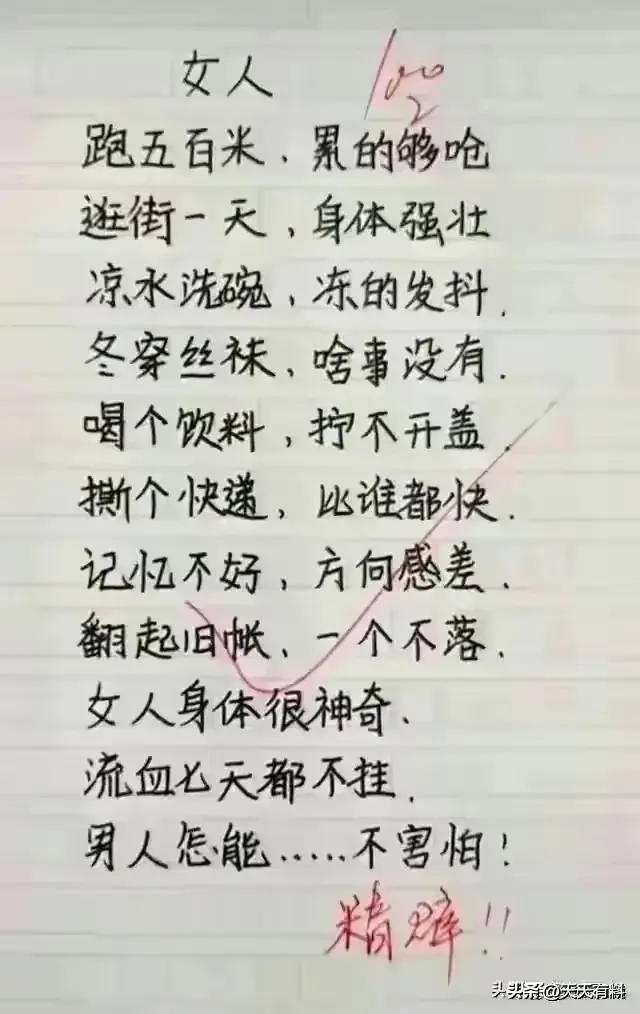 女人
100
跑五百米、累的够呛
逛街一天，身体强壮
凉水洗碗，冻的发抖.
冬穿丝袜、啥事没有.
喝个饮料，拧不开盖.
撕个快递，比谁都快.
记忆不好，方向感差.
翻起旧帐、一个不落.
女人身体很神奇.
流血七天都不挂.
男人怎能……不害怕！
精辟!!
头头条@天天有料